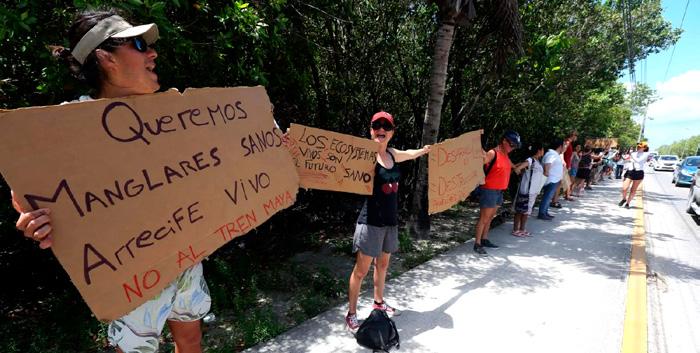 Queremos
MANGLARES SANOS
Arrecife VIVO
NO AL TREN MAYA
LOS ECOSISTEMAS
VIVOS SON
FUTURO SANO